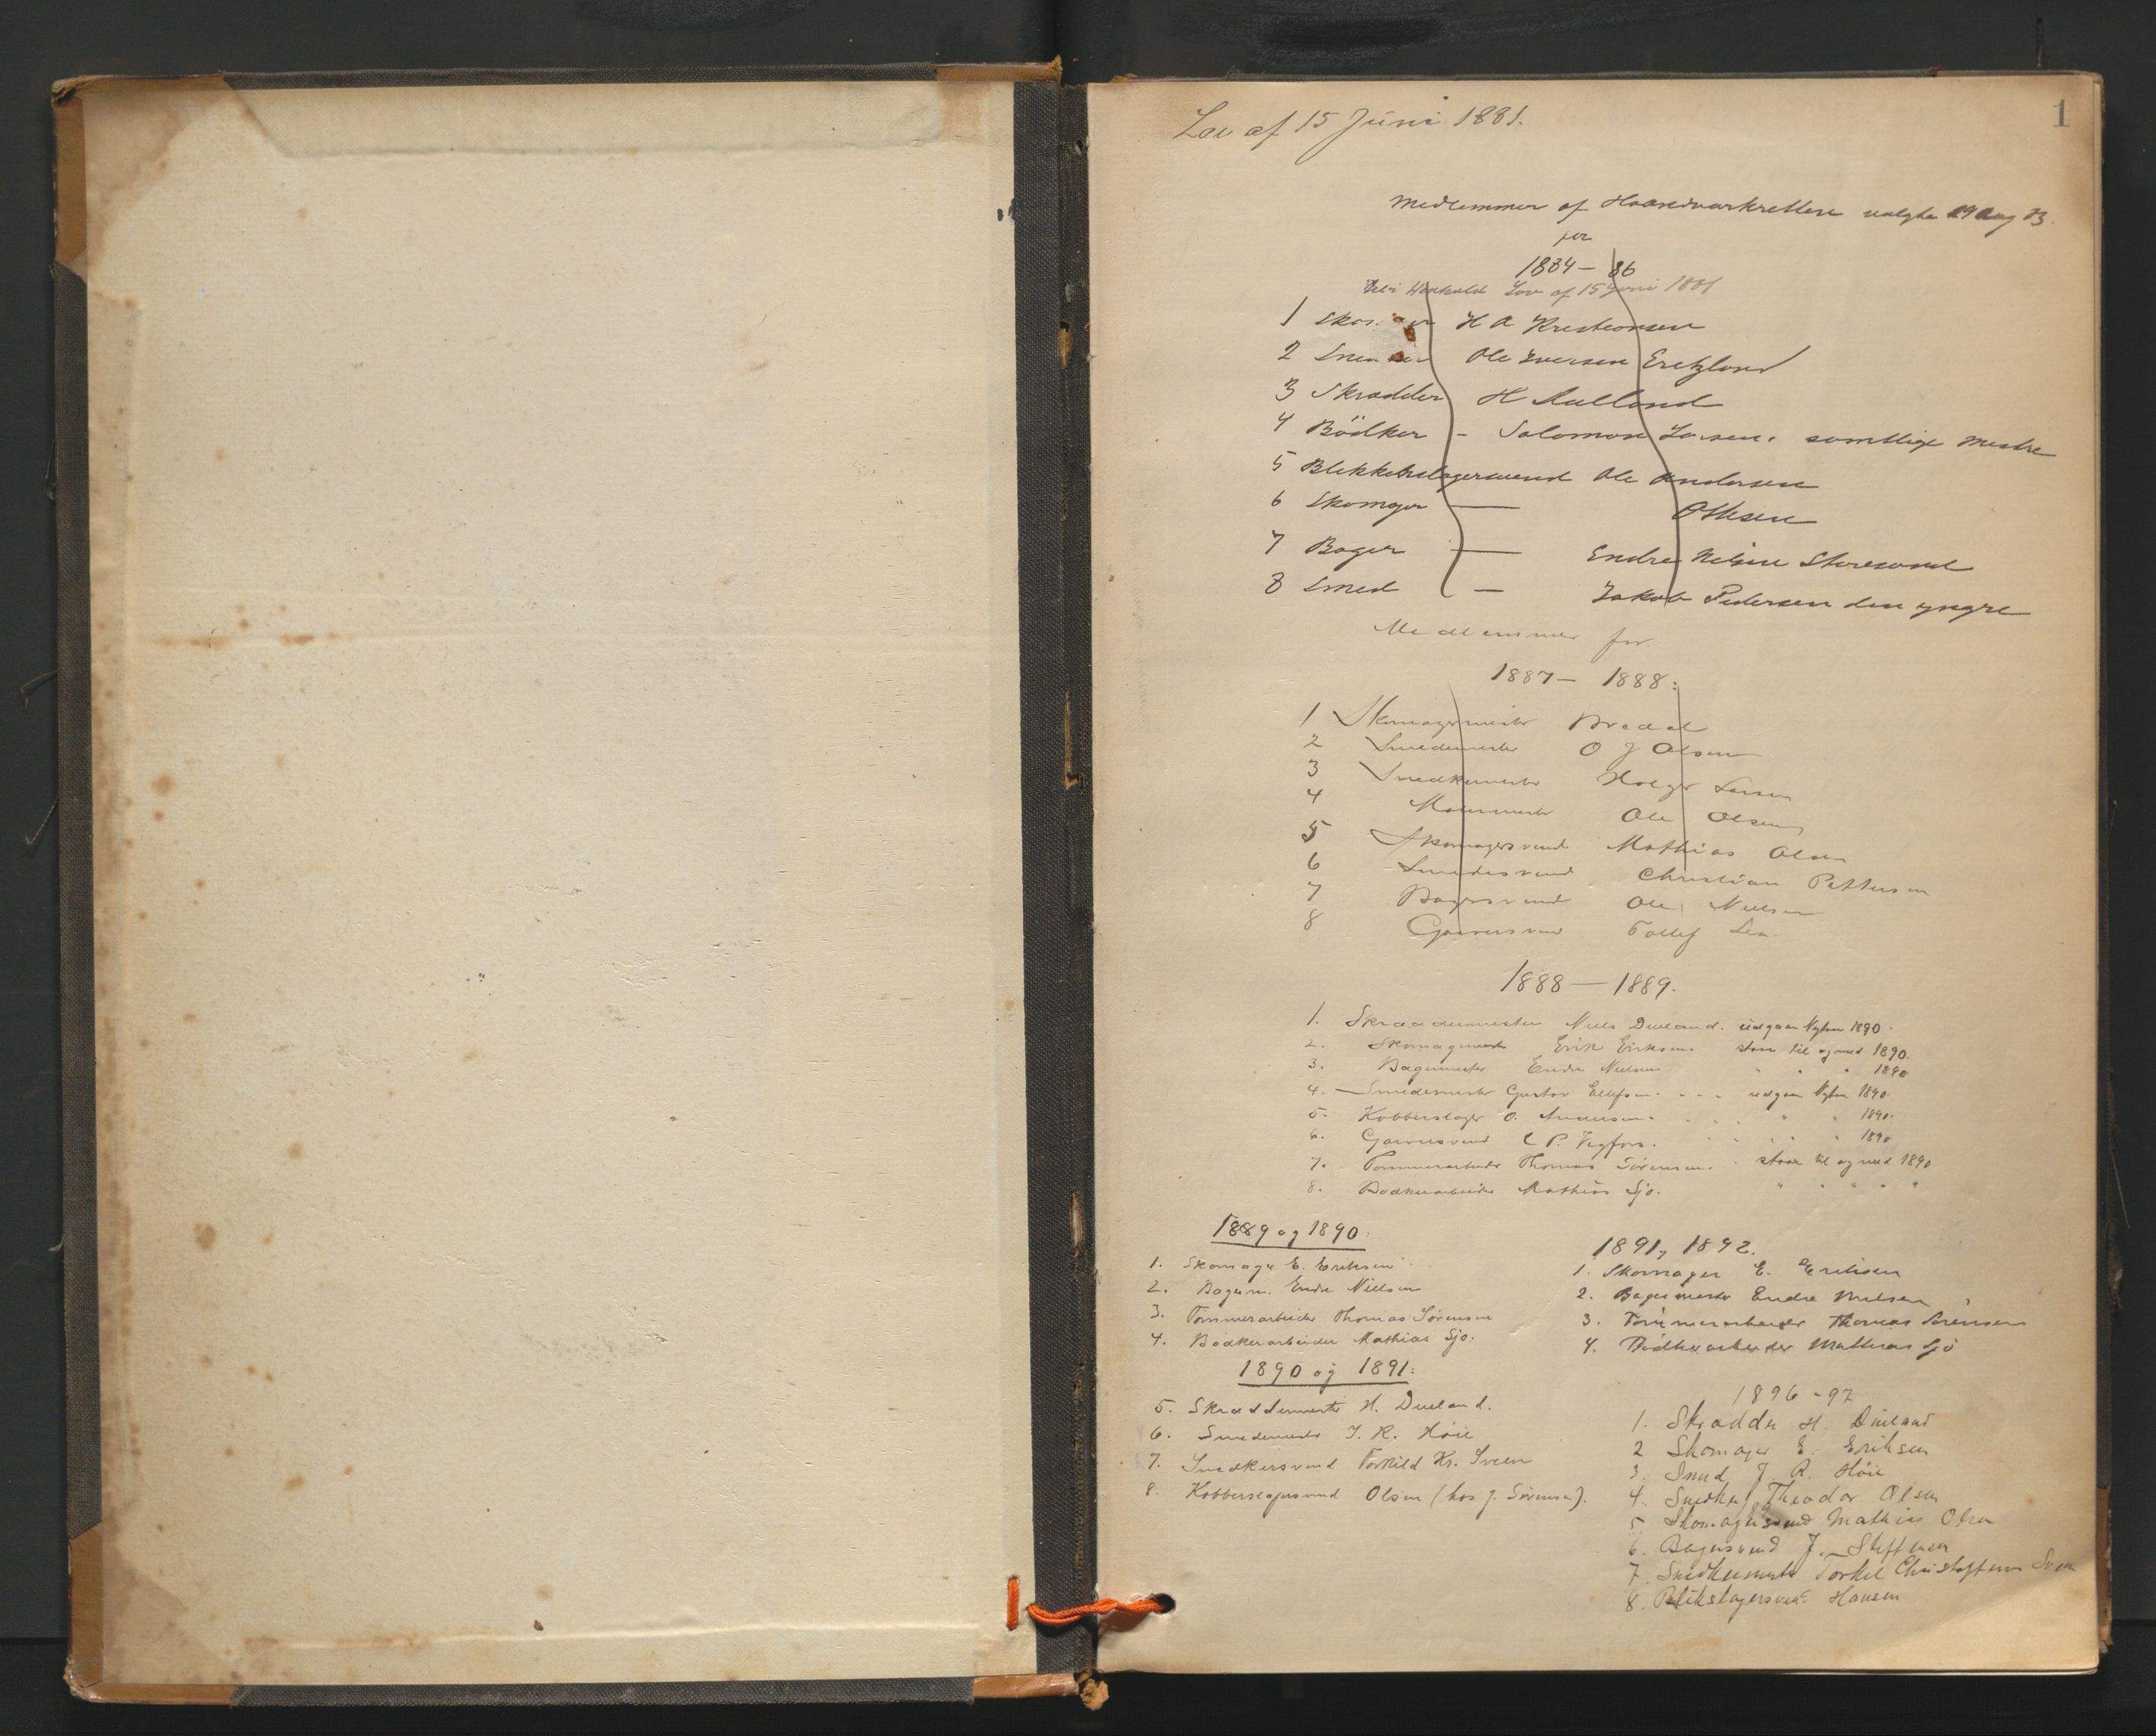 1
Lov af 15 Juni 1881.
Medlemmer af Haandværksretten valgte 29 Aug 83.
for
1884 - 86
Henhold Lov af 15 Juni 1881
1 H A Kristensen
2 Ole Iversen
3 Skrædder H Aulland
4 Bödker - Salomon Larsen. samtlige Mestre
5 Blikkenslagersvend Ole Andersen
6 Skomager — Ottesen
7 Bager — Endre Nelsen Storesund
8 Smed — Jakob Pedersen den yngre
Medlemmer for
1887 - 1888:
1 Skomagermester Bredal
2 Smedemester O J Olsen
3 Snedkermester Holger Larsen
4 Malermester Ole Olsen
5 Skomagersvend Mathias Olsen
6 Smedesvend Christian Pettersen
7 Bagersvend Ole Nielsen
8 Garversvend Tollef
1888 — 1889.
1. Skræddermester Niels Dueland. udgaar Nytaar 1890.
2. Skomagermester Erik Eriksen. staar til og med 1890.
3. Bagermester Endre Nielsen " " " 1890
4. Smedemester Gustav Ellefsen. - - - udgaar Nytaar 1890.
5. Kobberslager O. Andersen. " " 1890.
6. Garversvend C P. " " 1890
7. Tømmerarbeider Thomas Sörensen. staar til og med 1890
8. Bødkerarbeider Mathias Sjo. " " " " "
1889 og 1890.
1. Skomager E. Eriksen
2. Bagerm. Endre Nielsen
3. Tømmerarbeider Thomas Sørensen
4. Bødkerarbeider Mathias Sjo.
1890 og 1891.
5. Skræddermester H. Dueland.
6. Smedemester J. R. Höie
7. Snedkersvend Torkild Kr. Sveen
8. Kobberslagersvend Olsen (hos J. Sörensen).
1891, 1892.
1. Skomager E. Eriksen
2. Bagermester Endre Nielsen
3. Tömmerarbeider Thomas Sörensen
4. Bödkerarbeider Mathias Sjö
1896 - 97
1. Skrædder H. Dueland
2 Skomager E. Eriksen
3. Smed J. R. Höie
4. Snedker Theodor Olsen
5 Skomagersvend Mathias Olsen
6. Bagersvend J. Steffensen
7. Snedkermester Torkel Christoffersen Sveen
8. Blikslagersvend Hansen